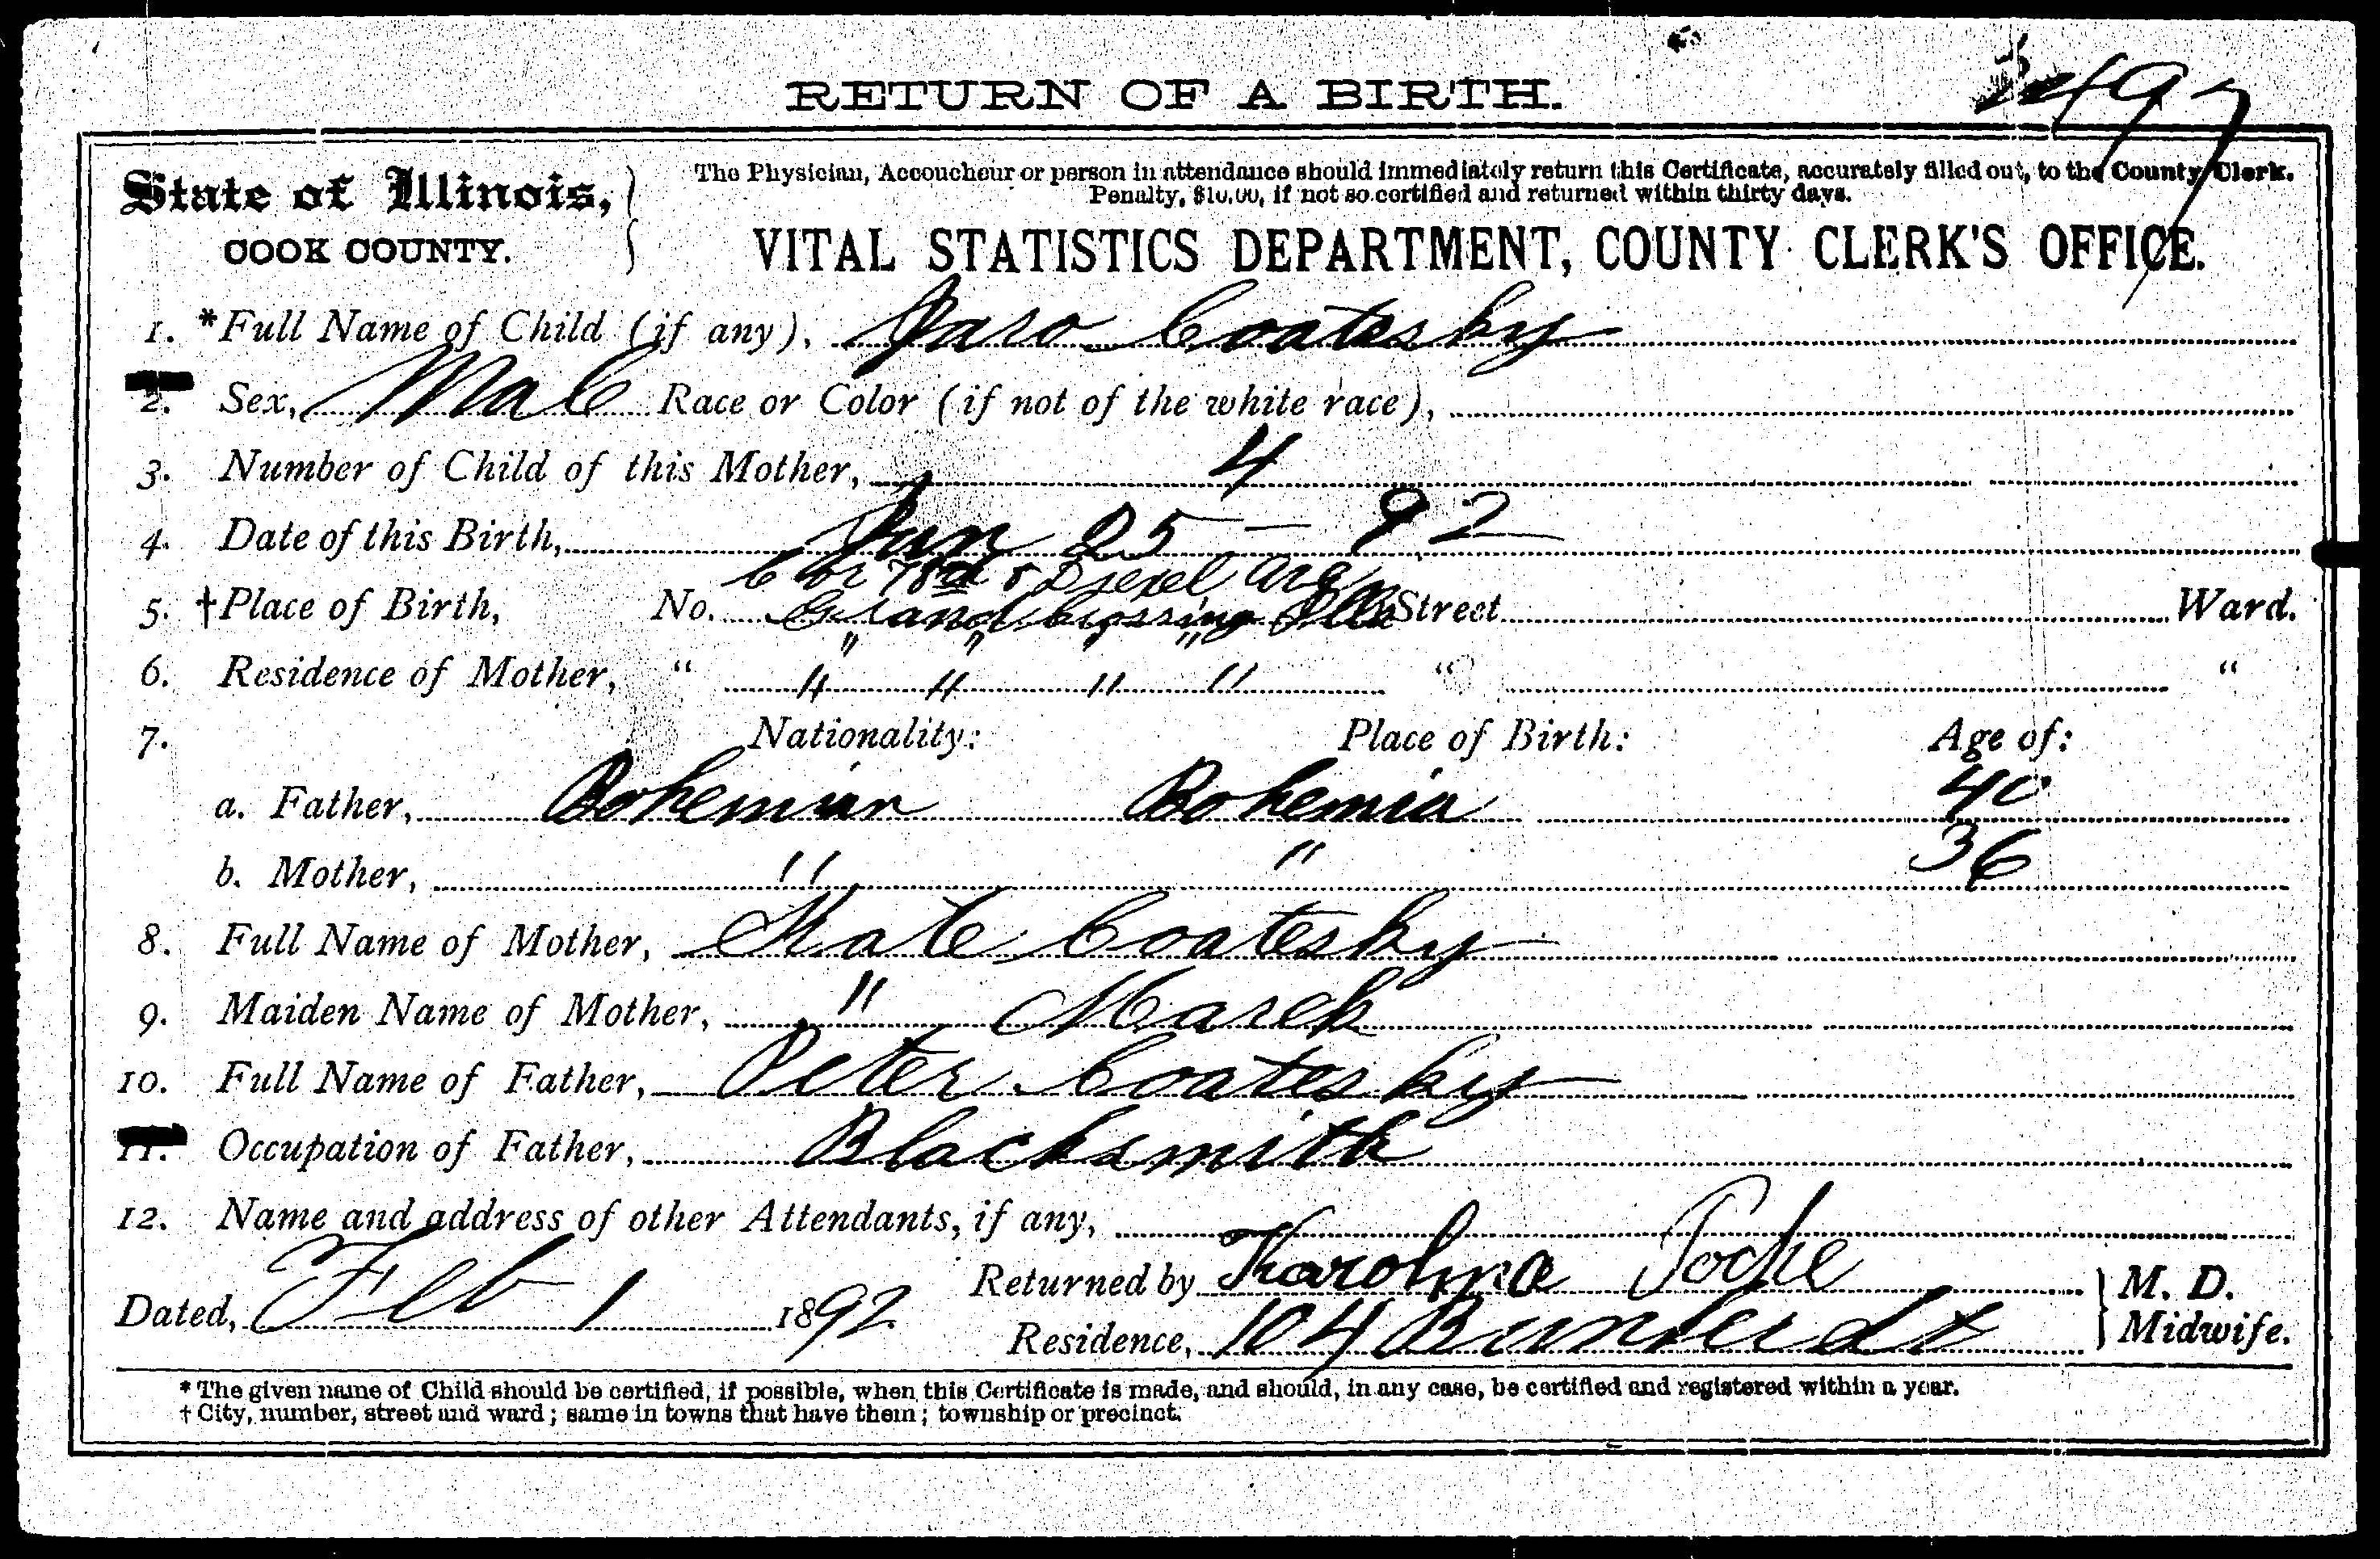 RETURN OF A BIRTH.
State of Illinois,
COOK COUNTY.
The Physician, Accoucheur or person in attendance should immediately return this Certificate, accurately filled out, to the County Clerk.
Penalty, $10.00, if not so certified and returned within thirty days.
VITAL STATISTICS DEPARTMENT, COUNTY CLERK'S OFFICE.
1. *Full Name of Child (if any), Jaro Coatesky
2. Sex, Male Race or Color (if not of the white race),
3. Number of Child of this Mother, 4
4. Date of this Birth, Jan 25 - 92
Cor & Drexel Ave
5. †Place of Birth, No. Grand Crossing Ills Street Ward.
6. Residence of Mother, " " " " " " "
7. Nationality: Place of Birth: Age of:
a. Father, Bohemian Bohemia 40
b. Mother, " " 36
8. Full Name of Mother, Kate Coatesky
9. Maiden Name of Mother, " Marek
10. Full Name of Father, Peter Coatesky
11. Occupation of Father, Blacksmith
12. Name and address of other Attendants, if any,
Dated, Feb 1 1892 Returned by Karolina M. D.
Residence, 104 Midwife.
* The given name of Child should be certified, if possible, when this Certificate is made, and should, in any case, be certified and registered within a year.
† City, number, street and ward; same in towns that have them; township or precinct.